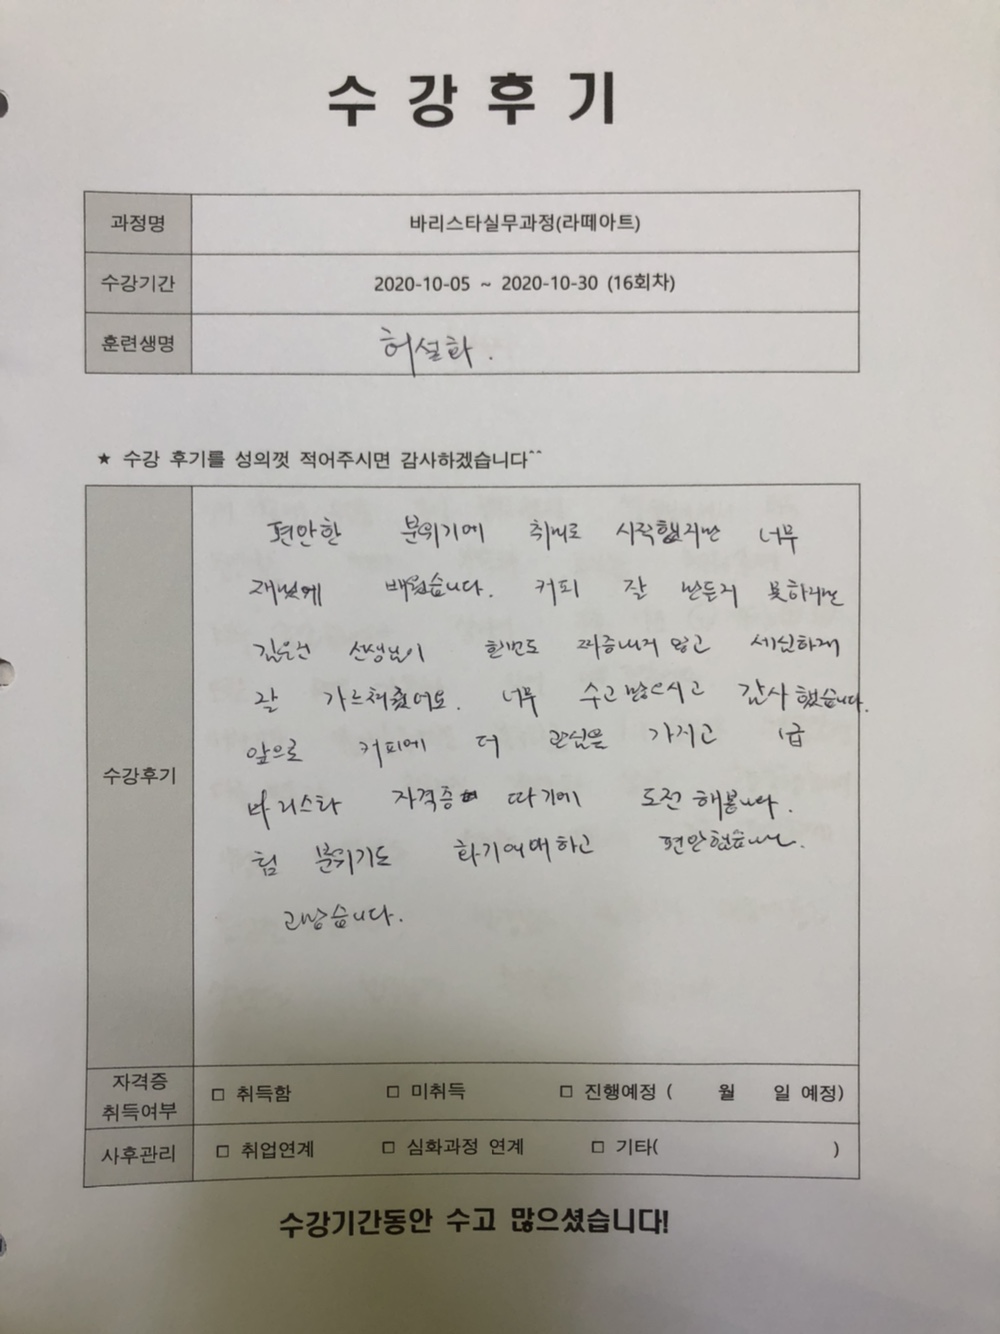 수강후기
과정명 바리스타실무과정(라떼아트)
수강기간 2020-10-05 ~ 2020-10-30 (16회차)
훈련생명 허설화.
★ 수강 후기를 성의껏 적어주시면 감사하겠습니다^^
수강후기
편안한 분위기에 취미로 시작했지만 너무
재밌에 배웠습니다. 커피 잘 만든지 못하지만
선생님이 한번도 짜증내지 않고 세심하게
잘 가르쳐줬어요. 너무 수고많으시고 감사했습니다.
앞으로 커피에 더 관심을 가지고 1급
바리스타 자격증 따기에 도전해봅니다.
힘 분위기도 화기애애하고 편안했습니다.
고맙습니다.
자격증
취득여부 □ 취득함 □ 미취득 □ 진행예정 ( 월 일 예정)
사후관리 □ 취업연계 □ 심화과정 연계 □ 기타( )
수강기간동안 수고 많으셨습니다!